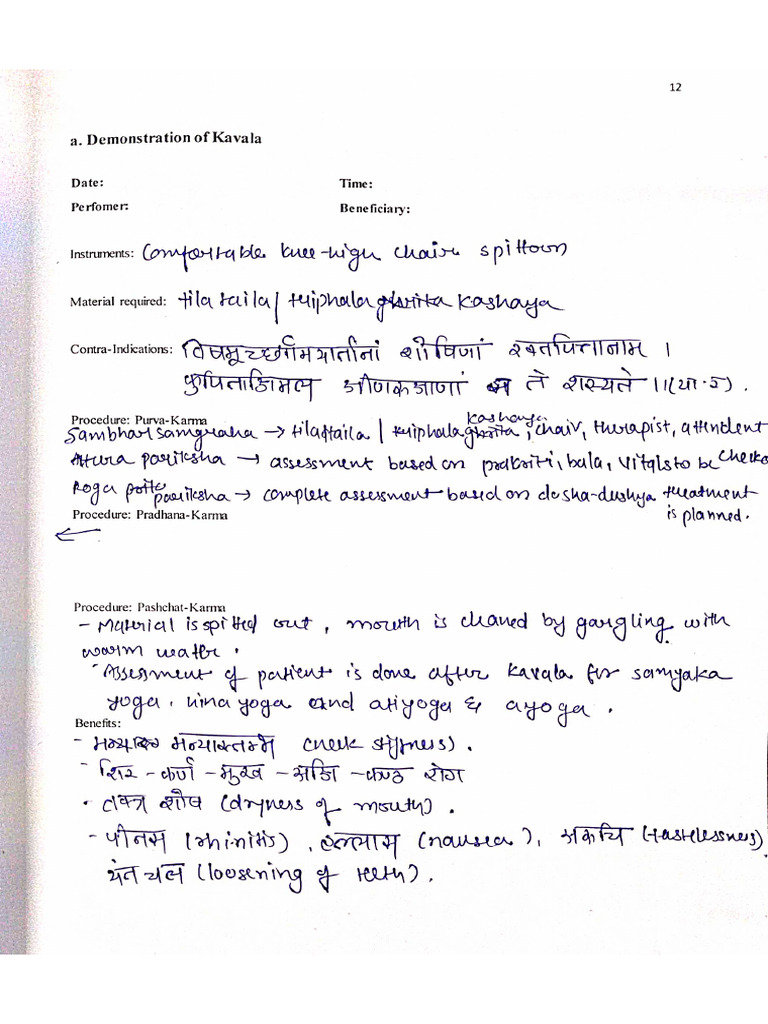 12
a. Demonstration of Kavala
Date: Time:
Perfomer: Beneficiary:
Instruments: Comfortable knee-high chair spittoon
Material required: tila taila / triphala kashaya
Contra-Indications: विषमूर्च्छामदार्तानां शोषिणां रक्तपित्तानाम ।
कुपिताक्षिमल क्षीणरुक्षाणां स ते शस्यते ।। (वा. 5).
Procedure: Purva-Karma
kashaya
Sambhar samgraha → tila taila / triphala, chair, therapist, attendent
Attura pariksha → assessment based on prakriti, bala, vitals to be checked
Roga pariksha → complete assessment based on dosha-dushya treatment
is planned.
Procedure: Pradhana-Karma
←
Procedure: Pashchat-Karma
- Material is spitted out, mouth is cleaned by gargling with
warm water.
- Assessment of patient is done after Kavala for samyaka
yoga, hina yoga and atiyoga & ayoga.
Benefits:
- मन्यास्तम्भ (neck stiffness).
- शिर - कर्ण - मुख - अक्षि - कण्ठ रोग
- वक्त्र शोष (dryness of mouth).
- पीनस (rhinitis), हल्लास (nausea), अरुचि (tastelessness),
दंतचल (loosening of teeth).